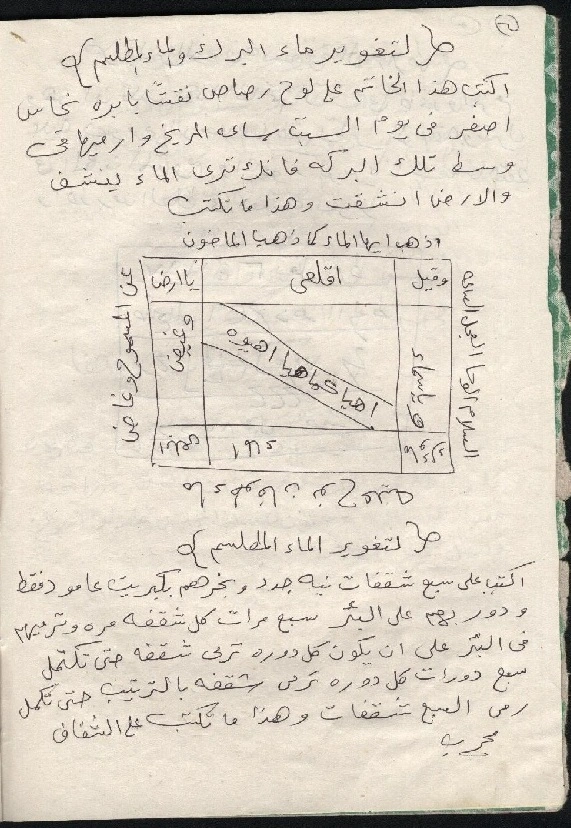 لتغوير ماء البرك والماء المطلسم
اكتب هذا الخاتم على لوح رصاص نقشا بابره نحاس
اصفر فى يوم السبت ساعه المريخ وارميها فى
وسط تلك البركه فانك ترى الماء ينشف
والارض انشقت وهذا ما تكتب
اذهب ايها الماء كما ذهب الماضون
وقيل اقلعى يا ارض
السلام الوحا العجل الساعه
ويا سماء
اهيا شراهيا
وغيض
لتغوير الماء المطلسم
اكتب على سبع شقفات نيه جدد وبخرهم بكبريت عامود فقط
ودور بهم على البئر سبع مرات كل شقفه مره وترميهم
فى البئر على ان يكون كل دوره ترمى شقفه حتى تكتمل
سبع دورات كل دوره ترمى شقفه بالترتيب حتى تكمل
رمى السبع شقفات وهذا ما تكتب على الشقاف
مجرب